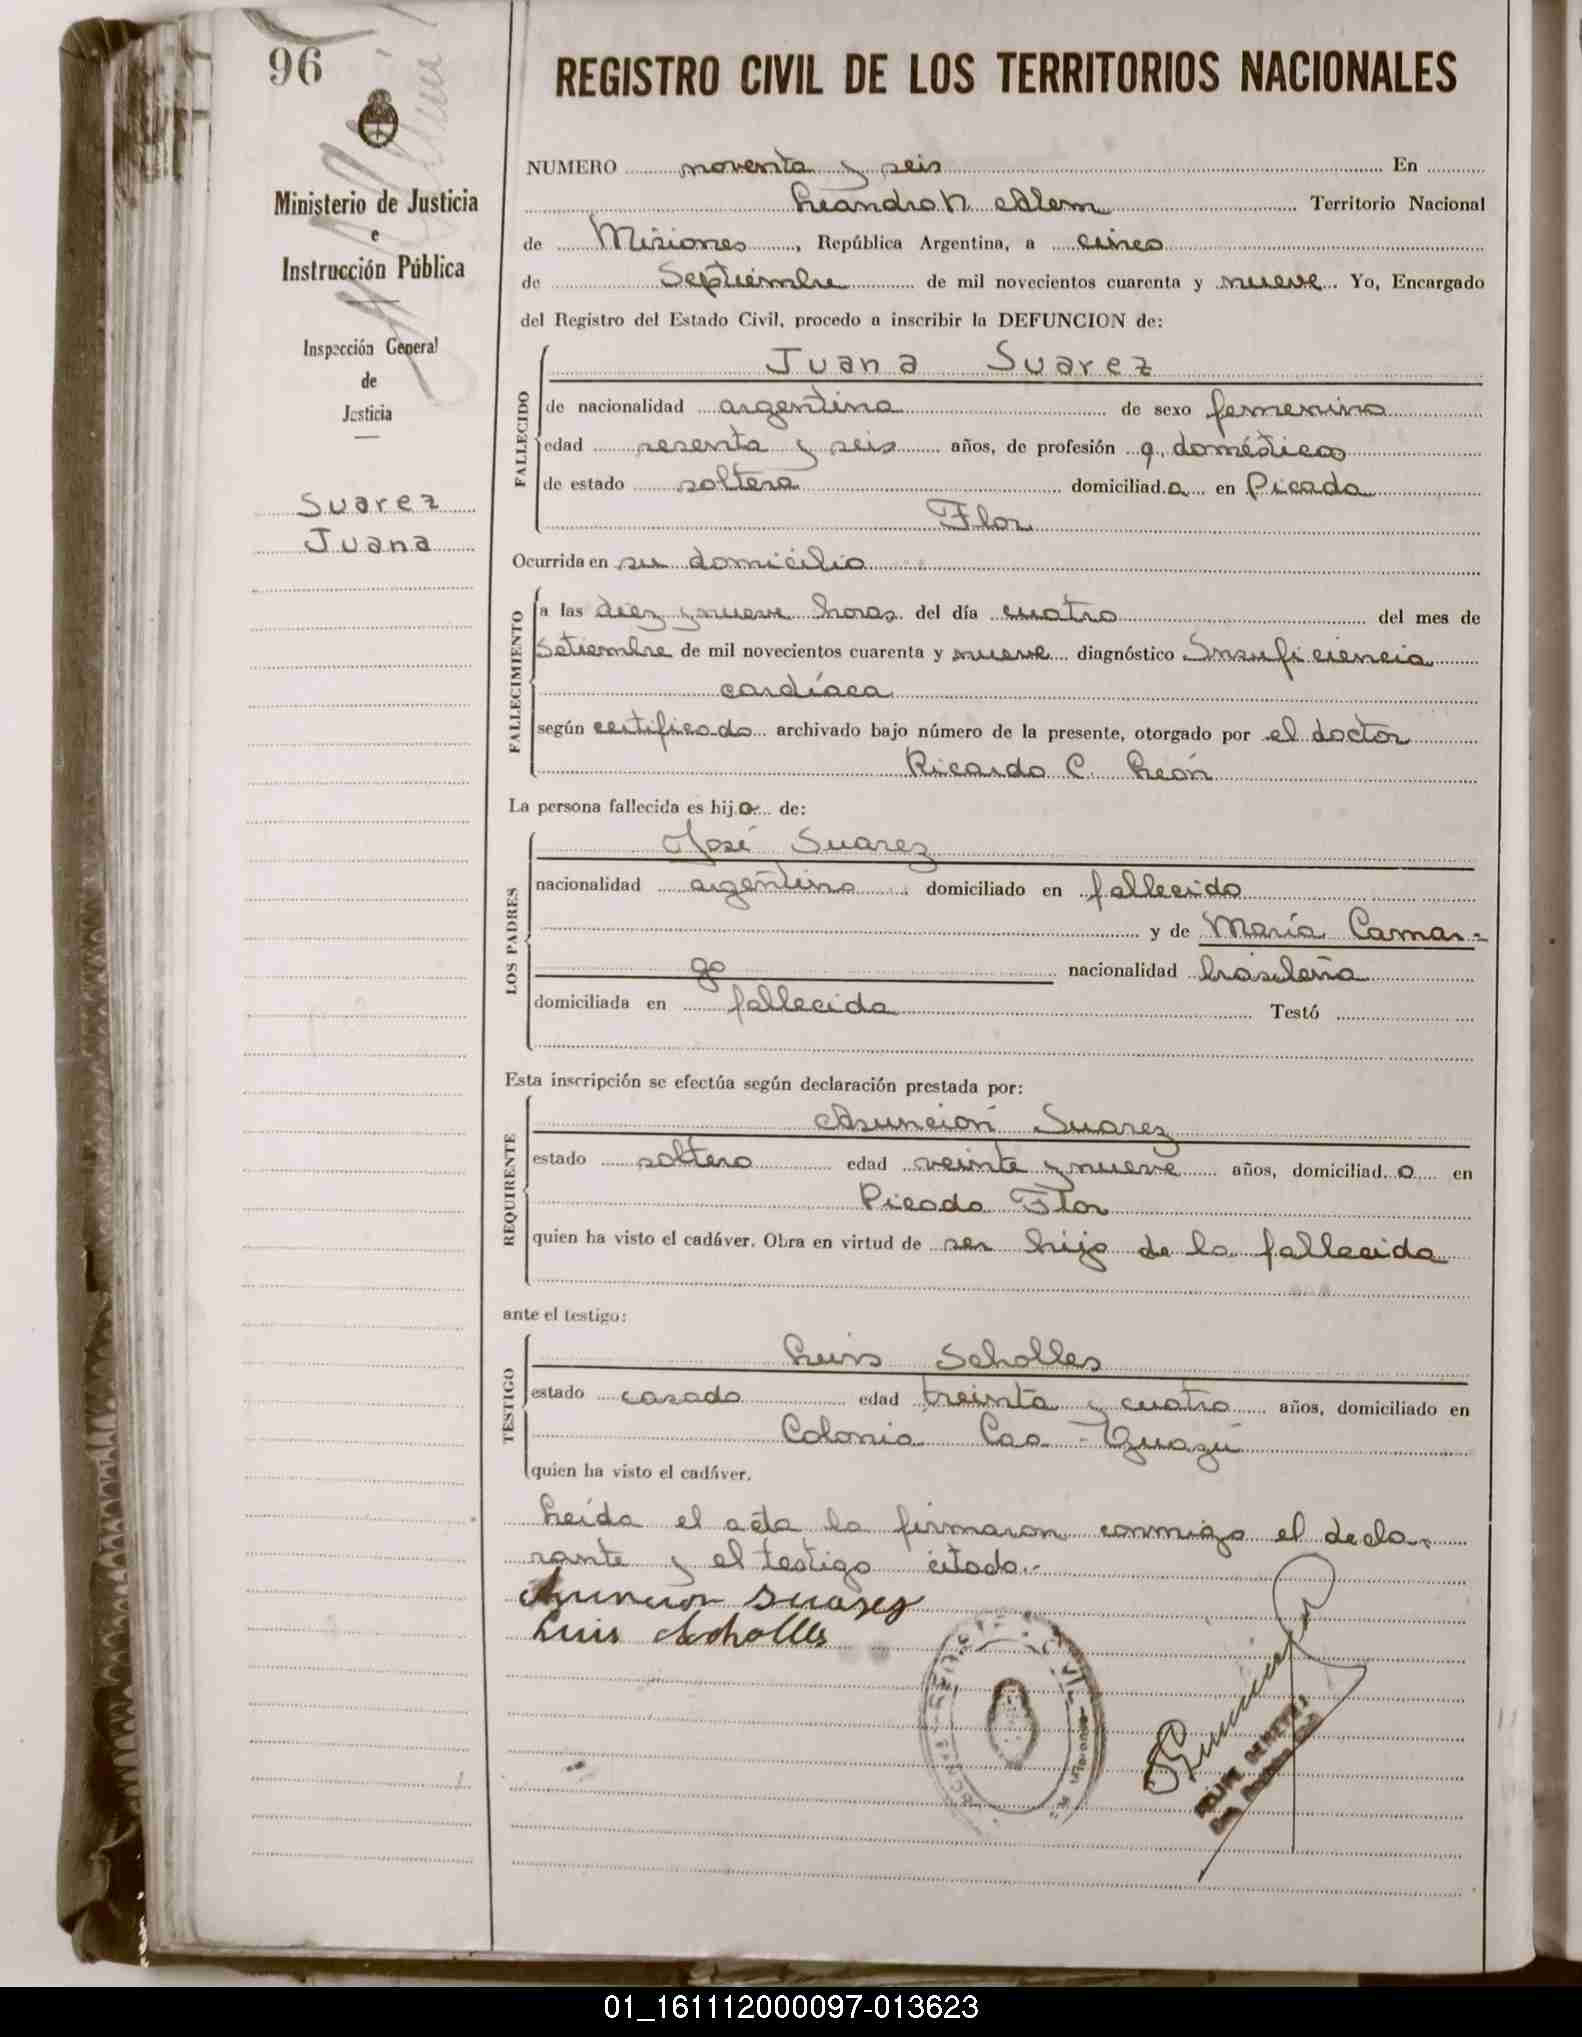 96
Ministerio de Justicia
e
Instrucción Pública
Inspección General
de
Justicia
Suarez
Juana
REGISTRO CIVIL DE LOS TERRITORIOS NACIONALES
NUMERO noventa y seis En
Leandro N Alem Territorio Nacional
de Misiones, República Argentina, a cinco
de Septiembre de mil novecientos cuarenta y nueve. Yo, Encargado
del Registro del Estado Civil, procedo a inscribir la DEFUNCION de:
FALLECIDO
Juana Suarez
de nacionalidad argentina de sexo femenino
edad sesenta y seis años, de profesión q. domésticos
de estado soltera domiciliad a en Picada
Flor
Ocurrida en su domicilio
FALLECIMIENTO
a las diez y nueve horas del día cuatro del mes de
Setiembre de mil novecientos cuarenta y nueve diagnóstico Insuficiencia
cardíaca
según certificado archivado bajo número de la presente, otorgado por el doctor
Ricardo C. León
La persona fallecida es hij a de:
LOS PADRES
José Suarez
nacionalidad argentino domiciliado en fallecido
y de María Camar-
go nacionalidad brasileña
domiciliada en fallecida Testó
Esta inscripción se efectúa según declaración prestada por:
REQUIRENTE
Asunción Suarez
estado soltero edad veinte y nueve años, domiciliad o en
Picada Flor
quien ha visto el cadáver. Obra en virtud de ser hijo de la fallecida
ante el testigo:
TESTIGO
Luis Scholles
estado casado edad treinta y cuatro años, domiciliado en
Colonia Caa-Guazú
quien ha visto el cadáver.
Leída el acta la firmaron conmigo el decla-
rante y el testigo citado.-
Asuncion Suarez
Luis Scholles
01_161112000097-013623